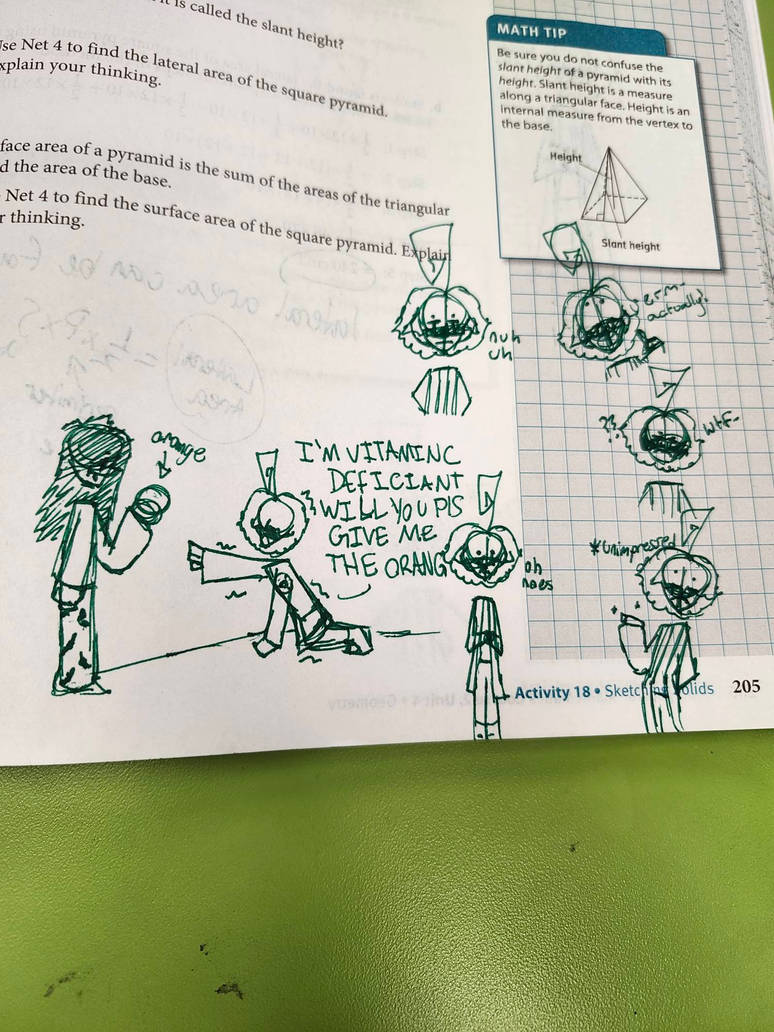 is called the slant height?
Use Net 4 to find the lateral area of the square pyramid.
xplain your thinking.
face area of a pyramid is the sum of the areas of the triangular
d the area of the base.
Net 4 to find the surface area of the square pyramid. Explain
r thinking.
MATH TIP
Be sure you do not confuse the
slant height of a pyramid with its
height. Slant height is a measure
along a triangular face. Height is an
internal measure from the vertex to
the base.
Height
Slant height
nuh
uh
erm-
actually!
??
wtf-
orange
I'M VITAMIN C
DEFICIANT
WILL YOU PLS
GIVE ME
THE ORANG
oh
noes
*unimpressed
Activity 18 • Sketching Solids 205